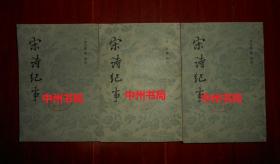 宋詩紀事
中州书局
宋詩紀事
中州书局
宋詩紀事
中州书局